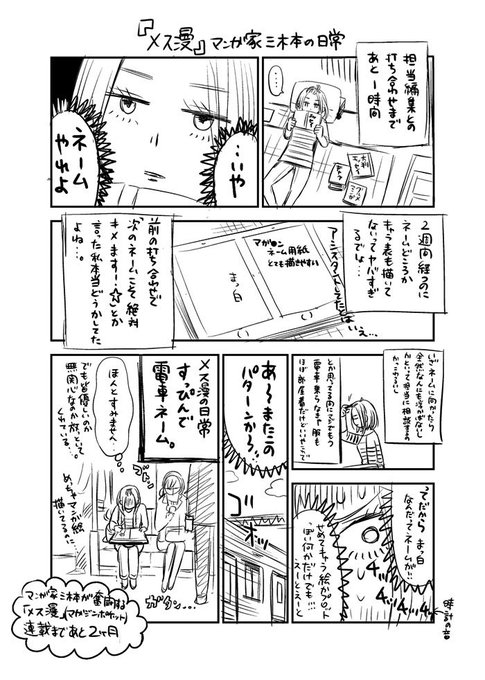 『メス漫』マンガ家三木本の日常
担当編集との
打ち合わせまで
あと1時間
…
…いや
ネーム
やれよ
2週間経つのに
ネームどころか
キャラ表も描いて
ないってヤバすぎ
るでしょ…
マガポン
ネーム用紙
とても描きやすい
まっ白
前の打ち合せで
「次のネームこそ絶対
キメます―!☆」とか
言った私本当どうかしてた
よね…。
いざネームに向かったら
全然なんにも浮かばないし
かといって担当に相談するの
とか思ってる間にマジでもう
電車乗らなきゃで服も
ほぼ部屋着だけどいいやここで
ってだから まっ白
なんだってネームが!!
せめてキャラ絵かプロット
ぽい何かだけでも…
えーとえーと
時計の音
あ〜またこの
パターンかぁ…
ゴオ
メス漫の日常
すっぴんで
電車ネーム。
ほんとすみませんへ…
でも皆優しいのか
無関心なのか放っといて
くれている。
めちゃマンガの絵
描いてるのに
ガタン…
マンガ家三木本が奮闘する
「メス漫」(マガジンポケット)
連載まであと2ヶ月